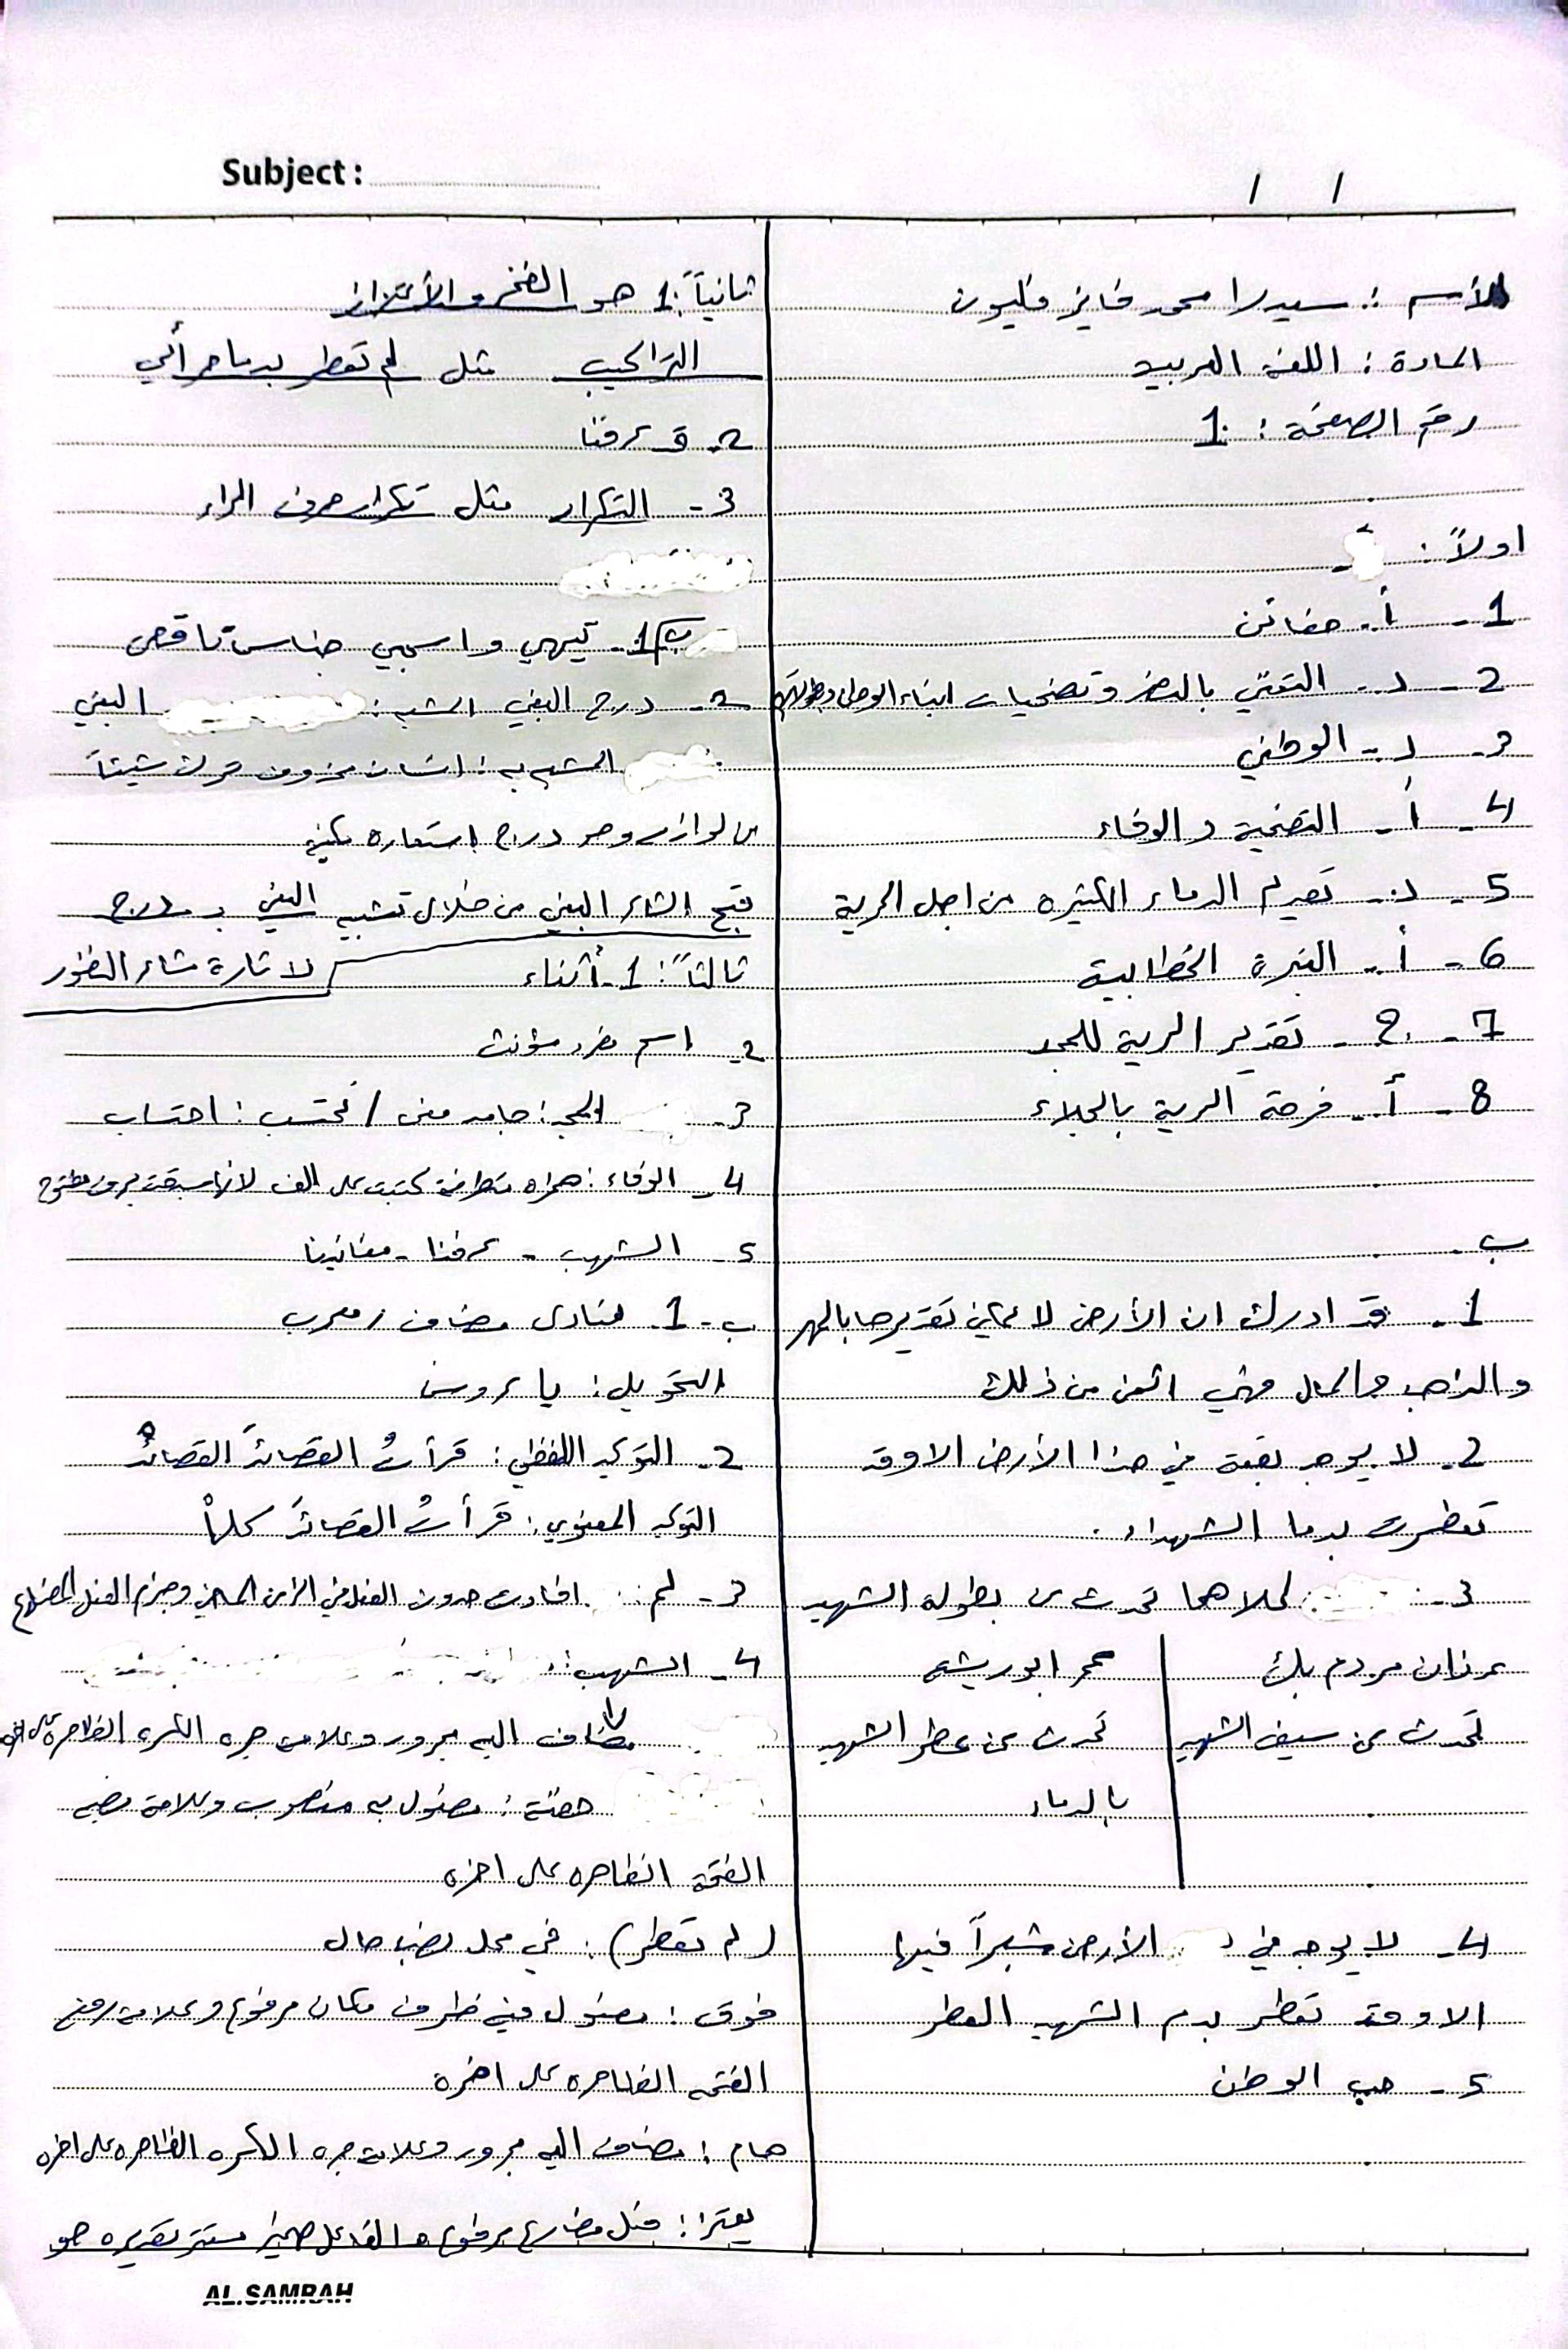 Subject :
/ /
الأسم : سيدرا محمد فايز فليون
المادة : اللغة العربية
رقم الصفحة : 1
اولاً :
1 - أ - مغاني
2 - د - التغني بالنصر و تضحيات ابناء الوطن وبطولاتهم
3 - د - الوطني
4 - أ - التضحية و الوفاء
5 - د - تقديم الدماء الكثيرة من اجل الحرية
6 - أ - النبرة الخطابية
7 - ج - تقدير الحرية للمجد
8 - أ - فرحة الحرية بالجلاء
ب -
1 - قد ادرك ان الأرض لا يمكن تقديرها بالمهر
و الذاهب والمال فهي اثمن من ذلك
2 - لا يوجد بقعة في هذا الأرض الا وقد
تعطرت بدما الشهداء .
3 - كلاهما تحدث عن بطولة الشهيد
عدنان مردم بك
عمر ابو ريشة
تحدث عن سيف الشهيد
تحدث عن عطر الشهيد
بالدماء
4 - لا يوجد في الأرض شبراً فيها
الا وقد تعطر بدم الشهيد العطر
5 - حب الوطن
ثانياً : 1 هو الفخر و الأعتزاز
التراكيب مثل لم تعطر بدما حر أبي
2 - قد عرفنا
3 - التكرار مثل تكرار حرف الراء
ب 1 - تيهي واسحبي جناس ناقص
2 - درج البغي المشبه : البغي
المشبه به : انسان محذوف ترك شيئاً
من لوازمه وهو درج استعارة مكنية
قبح الشاعر البغي من خلال تشبيه البغي بـ درج
لاثارة مشاعر النفور
ثالثاً : 1 - أثناء
2 - اسم مفرد مؤنث
3 - المجد : جامد معنى / نحتسب : احتساب
4 - الوفاء : همزة متطرفة كتبت على الف لانها سبقت بحرف مفتوح
5 - الشهب - عرفنا - مغانينا
ب - 1 - منادى مضاف ، معرب
التحويل : يا عروس
2 - التوكيد اللفظي : قرأتُ القصائدَ القصائدُ
التوكيد المعنوي : قرأتُ القصائدَ كلها
3 - لم : افادت حدوث الفعل في الزمن الماضي وجزم الفعل المضارع
4 - الشهب :
مضاف اليه مجرور وعلامة جره الكسرة الظاهرة على اخره
حفنة : مفعول به منصوب وعلامة نصبه
الفتحة الظاهرة على اخره
( لم تعطر ) : في محل نصب حال
فوق : مفعول فيه ظرف مكان مرفوع وعلامة رفعه
الفتحه الظاهرة على اخرة
هام : مضاف اليه مجرور وعلامة جره الكسره الظاهرة على اخره
فعل مضارع مرفوع و الفاعل ضمير مستتر تقديره هو
AL.SAMRAH